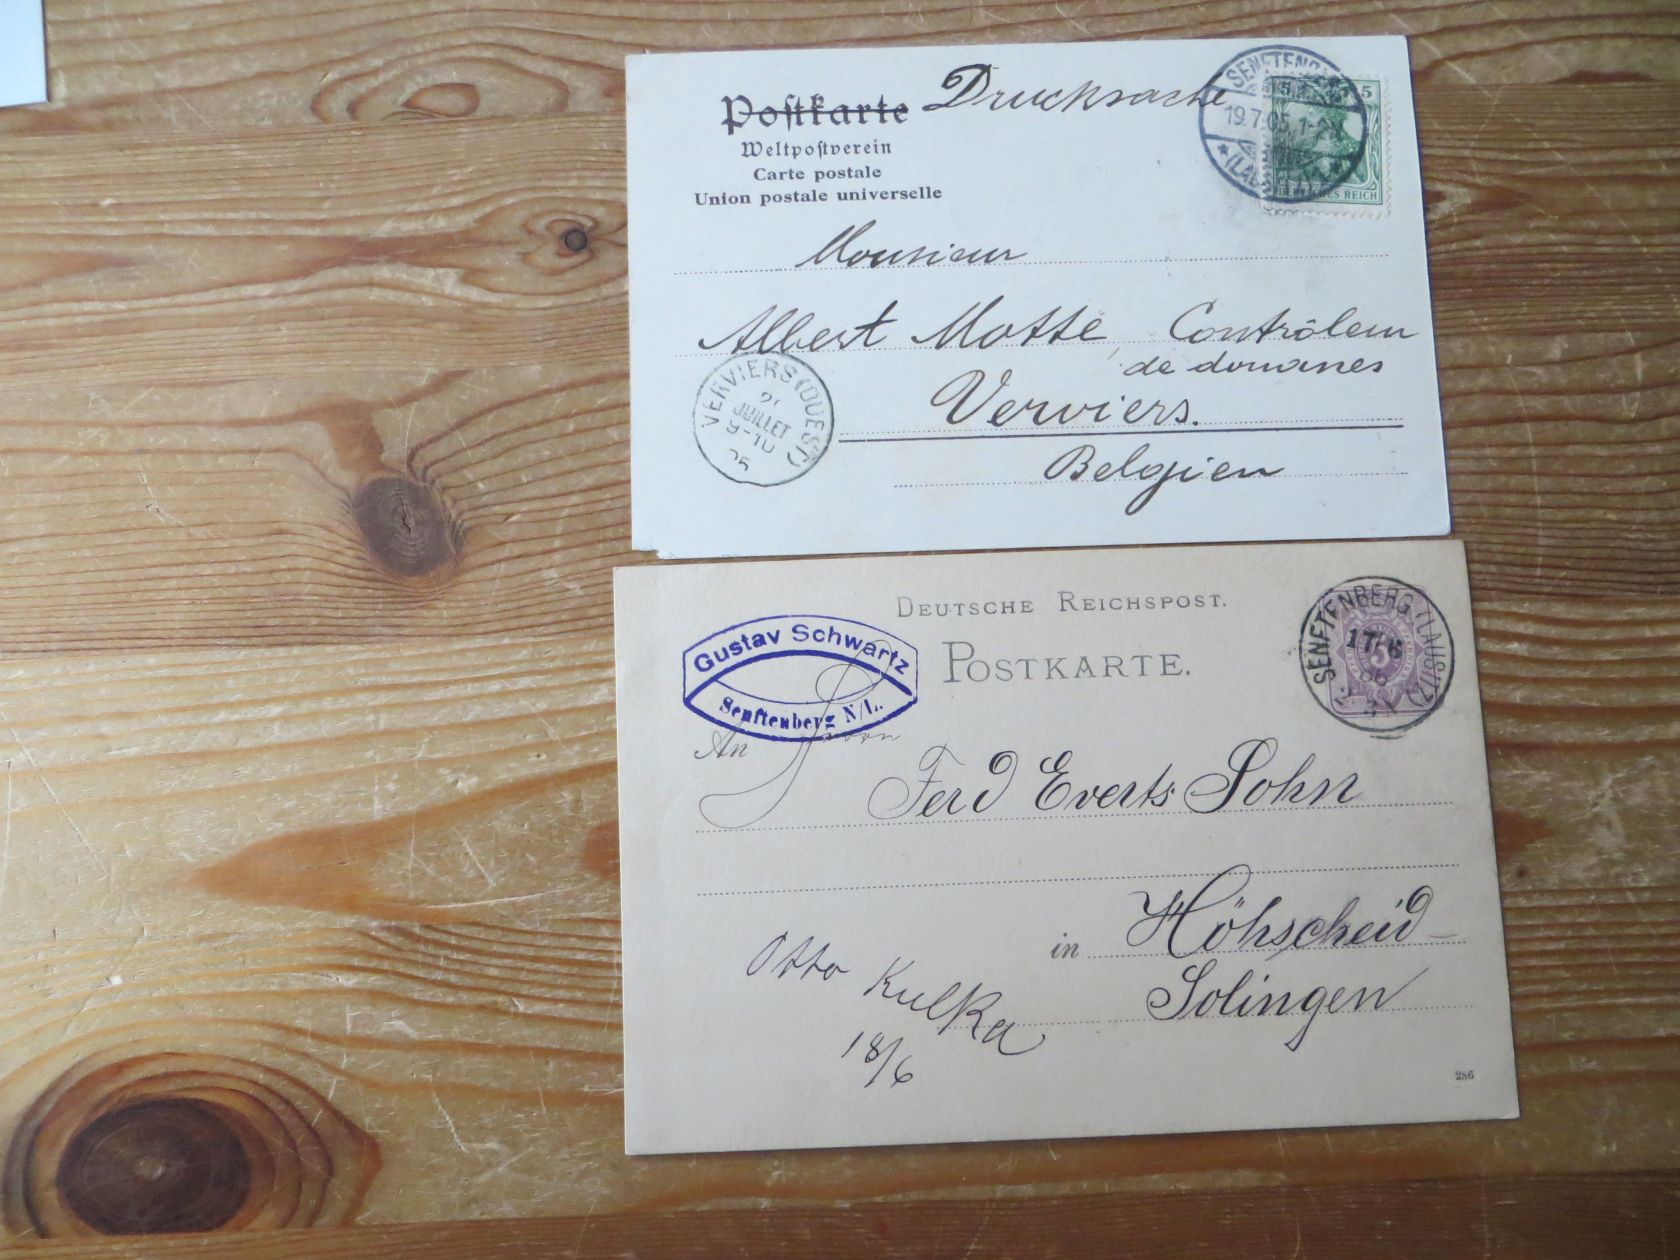 Postkarte Drucksache
Weltpostverein
Carte postale
Union postale universelle
SENFTENB
19.7.05. 1-2N
5 5
REICH
Monsieur
Albert Motte, Contrôleur
de douanes
VERVIERS (OUEST)
JUILLET
9-10
05
Verviers.
Belgien
DEUTSCHE REICHSPOST.
POSTKARTE.
Gustav Schwartz
Senftenberg N/L.
SENFTENBERG (LAUSITZ)
An
Ferd Everts Sohn
in Höhscheid-
Solingen
Otto Kulka
18/6
286